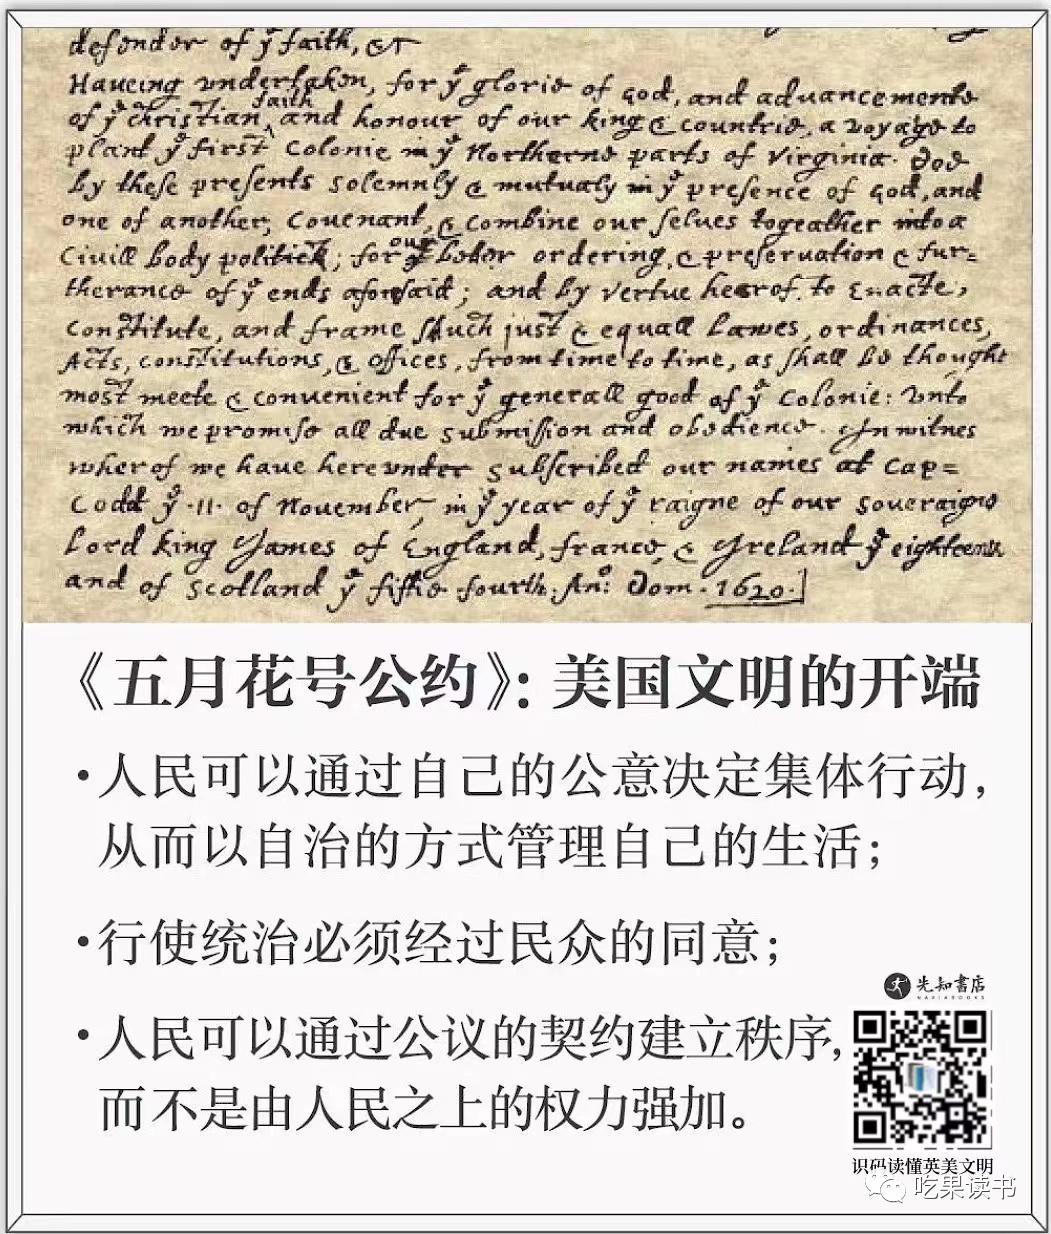 defender of yᵉ faith, &c
Haueing vndertaken, for yᵉ glorie of god, and advancemente
of yᵉ christian faith and honour of our king & countrie, a voyage to
plant yᵉ first Colonie in yᵉ Northerne parts of Virginia. Doe
by these presents solemnly & mutualy in yᵉ presence of god, and
one of another, Couenant, & combine our selues togeather into a
Ciuill body politick; for our better ordering, & preseruation & fur=
therance of yᵉ ends aforesaid; and by vertue hearof to Enacte,
Constitute, and frame shuch just & equall lawes, ordinances,
Acts, constitutions, & offices, from time to time, as shall be thought
most meete & conuenient for yᵉ generall good of yᵉ Colonie: Vnto
which we promise all due submission and obedience. In witnes
wherof we haue herevnder subscribed our names at Cap=
Codd yᵉ ·11· of Nouember, in yᵉ year of yᵉ raigne of our soueraigne
Lord king James of England, france, & Ireland yᵉ eighteenth
and of Scotland yᵉ fiftie fourth. Anº: Dom. 1620.]
《五月花号公约》：美国文明的开端
·人民可以通过自己的公意决定集体行动，
从而以自治的方式管理自己的生活；
·行使统治必须经过民众的同意；
先知書店
NAVIABOOKS
·人民可以通过公议的契约建立秩序，
而不是由人民之上的权力强加。
识码读懂英美文明
吃果读书